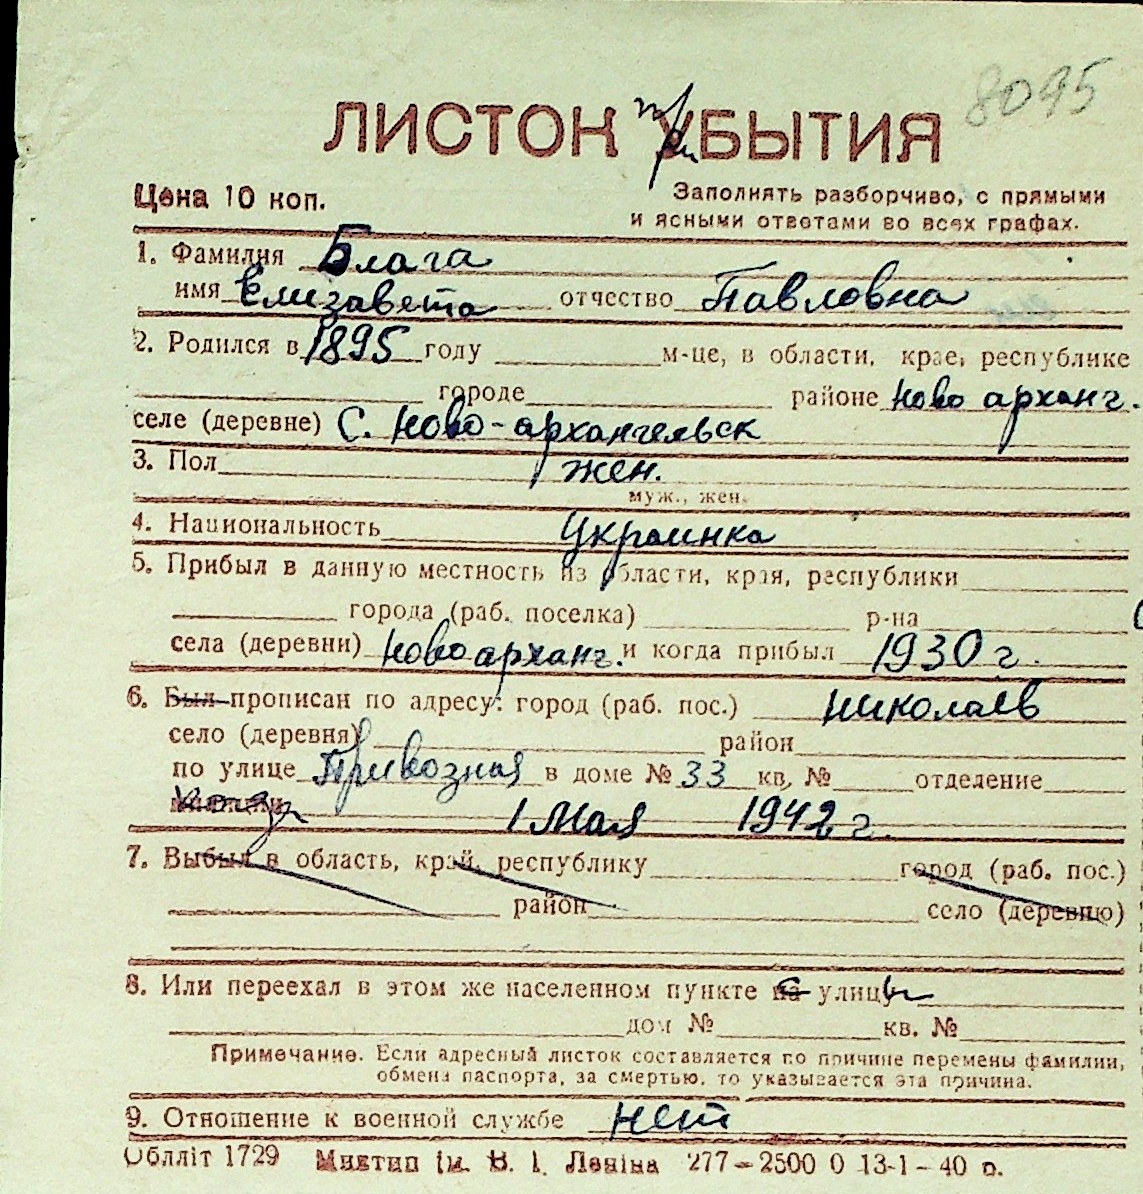 8095
ЛИСТОК прибытия
Цена 10 коп.
Заполнять разборчиво, с прямыми
и ясными ответами во всех графах.
1. Фамилия Блага
имя Елизавета отчество Павловна
2. Родился в 1895 году м-це, в области, крае, республике
городе районе Ново арханг.
селе (деревне) С. Ново-архангельск
3. Пол жен.
муж., жен.
4. Национальность Украинка
5. Прибыл в данную местность из области, края, республики
города (раб. поселка) р-на
села (деревни) Новоарханг. и когда прибыл 1930 г.
6. Был прописан по адресу: город (раб. пос.) Николаев
село (деревня) район
по улице Привозная в доме № 33 кв. № отделение
1 Мая 1942 г.
7. Выбыл в область, край, республику город (раб. пос.)
район село (деревню)
8. Или переехал в этом же населенном пункте с улицы
дом № кв. №
Примечание. Если адресный листок составляется по причине перемены фамилии,
обмена паспорта, за смертью, то указывается эта причина.
9. Отношение к военной службе нет
Облліт 1729 Миктип ім. В. І. Леніна 277—2500 0 13-1-40 р.